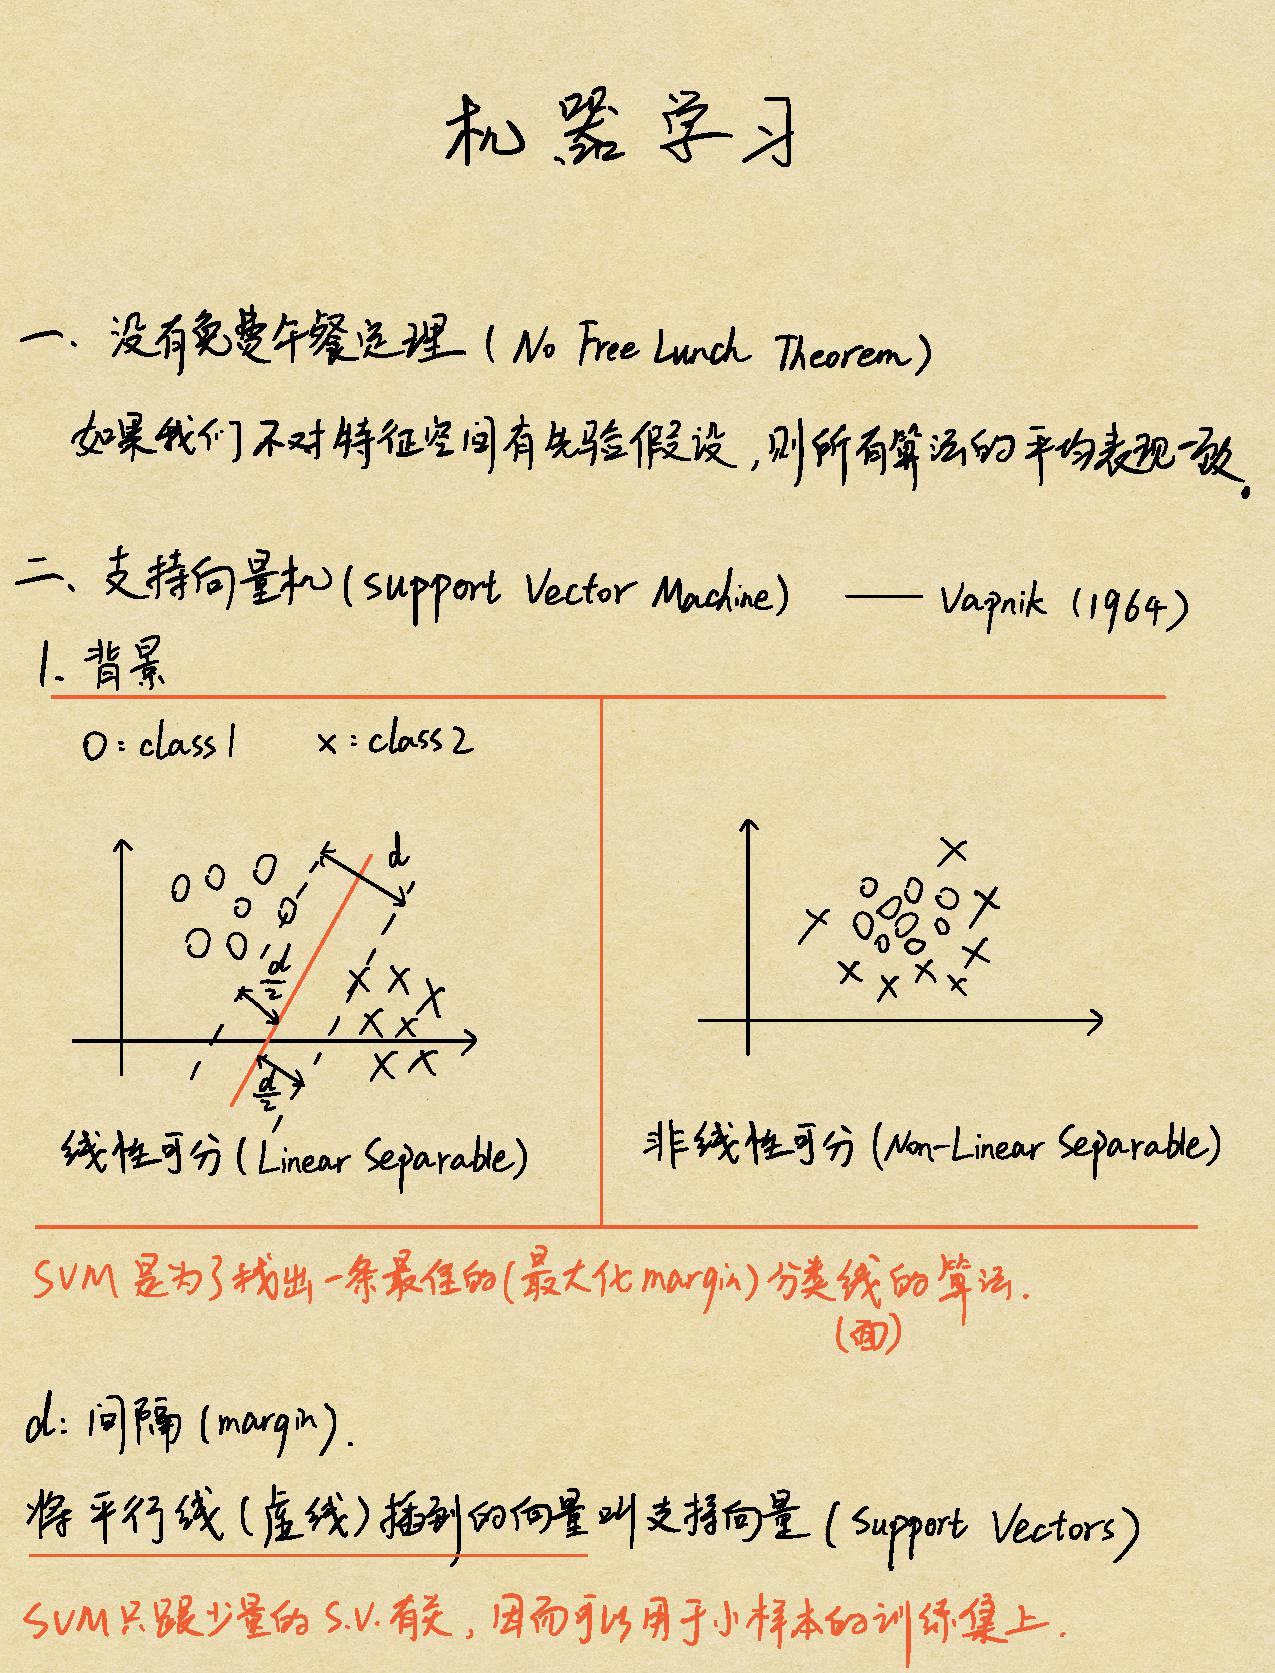 机器学习
一、没有免费午餐定理 (No Free Lunch Theorem)
如果我们不对特征空间有先验假设,则所有算法的平均表现一致.
二、支持向量机(Support Vector Machine) —— Vapnik (1964)
1. 背景
O:class1 x:class2
d
d/2
d/2
线性可分(Linear Separable)
非线性可分(Non-Linear Separable)
SVM是为了找出一条最佳的(最大化margin)分类线的算法.
(面)
d:间隔(margin).
将平行线(虚线)插到的向量叫支持向量(Support Vectors)
SVM只跟少量的S.V.有关,因而可以用于小样本的训练集上.